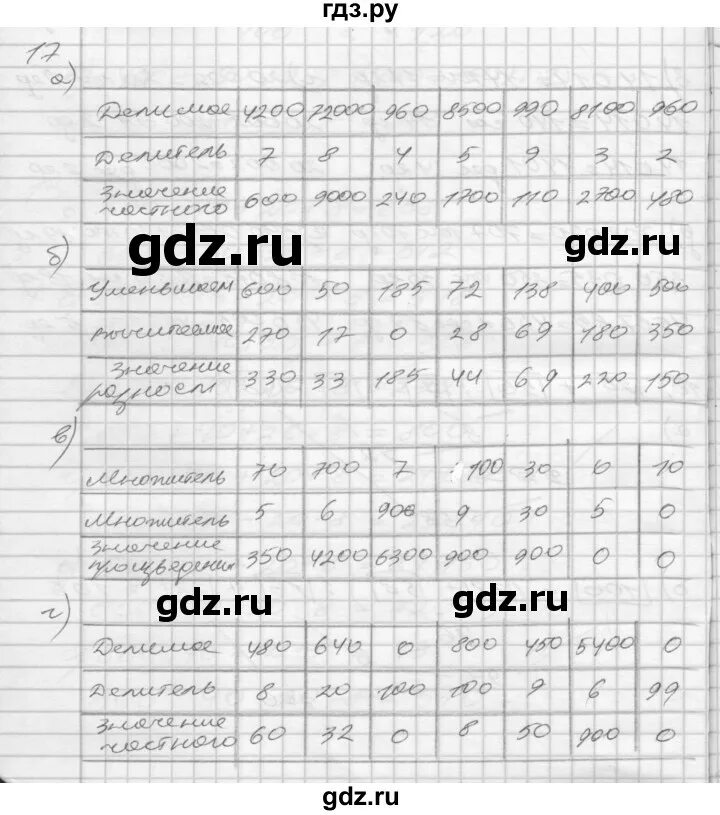 гдз.ру
17
а)
Делимое 4200 72000 960 8500 990 8100 960
Делитель 7 8 4 5 9 3 2
Значение частного 600 9000 240 1700 110 2700 480
gdz.ru gdz.ru
б)
Уменьшаем 600 50 185 72 138 400 500
Вычитаемое 270 17 0 28 69 180 350
Значение разности 330 33 185 44 69 220 150
в)
Множитель 70 700 7 100 30 0 10
Множитель 5 6 900 9 30 5 0
Значение произведения 350 4200 6300 900 900 0 0
gdz.ru gdz.ru
г)
Делимое 480 640 0 800 450 5400 0
Делитель 8 20 100 100 9 6 99
Значение частного 60 32 0 8 50 900 0
gdz.ru